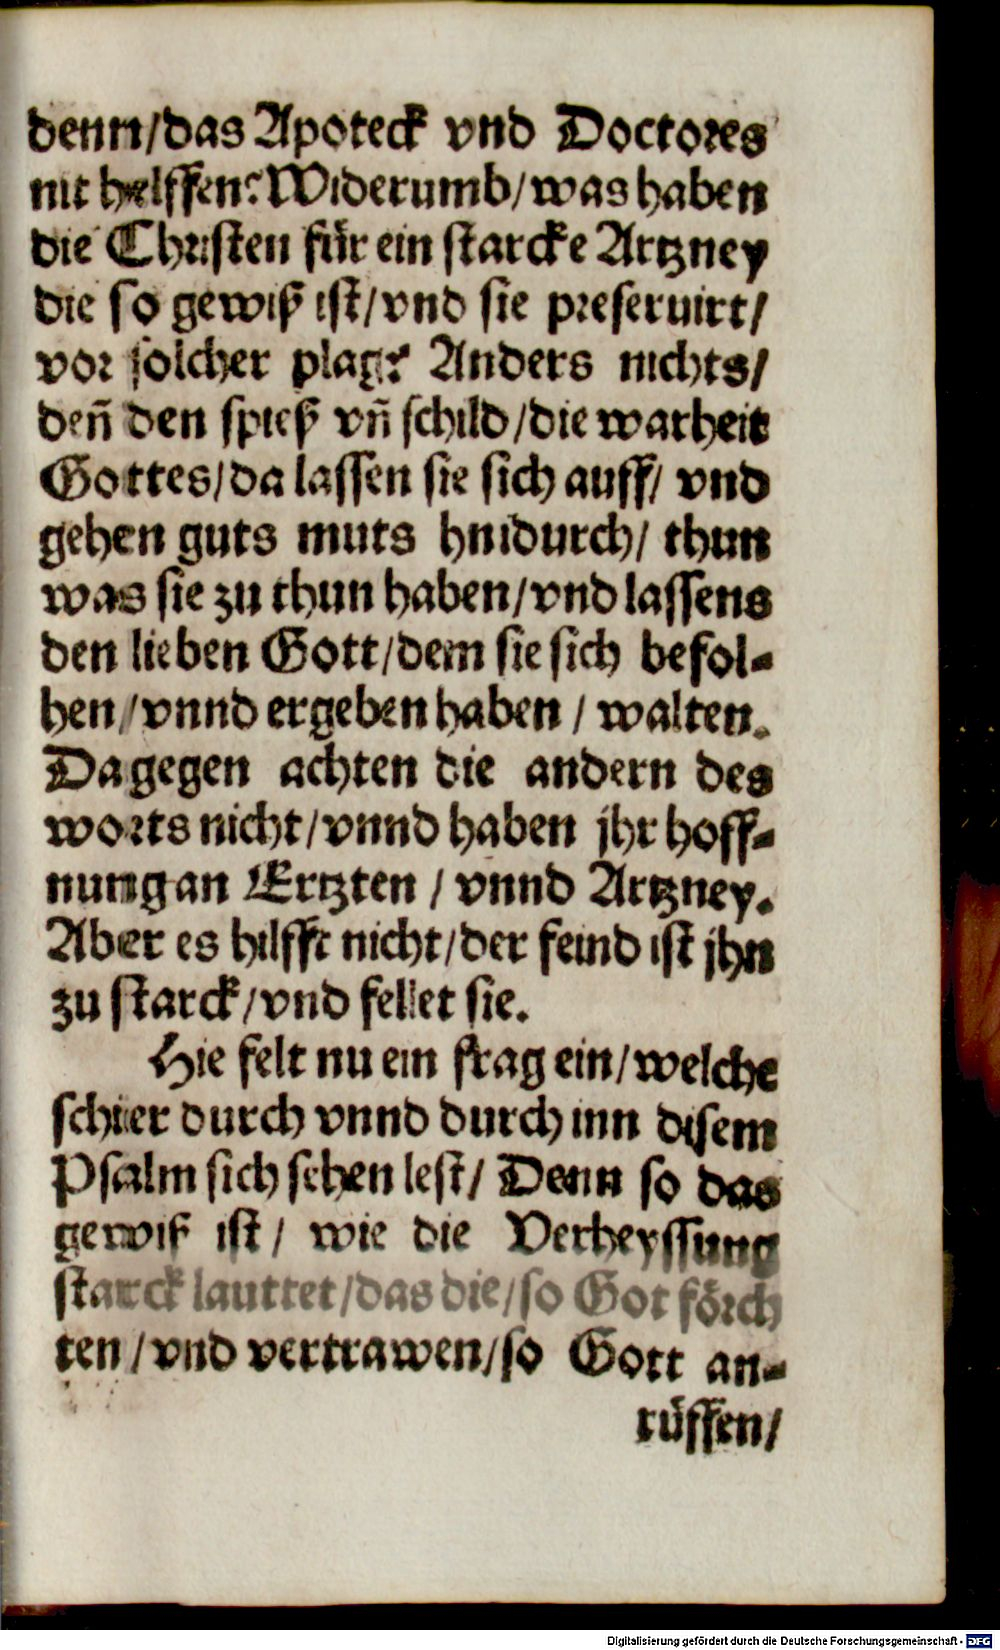 denn/das Apoteck vnd Doctores
nit helffen? Widerumb/was haben
die Christen für ein starcke Artzney
die so gewiß ist/vnd sie preseruirt/
vor solcher plag? Anders nichts/
deñ den spieß vñ schild/die warheit
Gottes/da lassen sie sich auff/ vnd
gehen guts muts hnidurch/ thun
was sie zu thun haben/vnd lassens
den lieben Gott/dem sie sich befol-
hen/vnnd ergeben haben / walten.
Dagegen achten die andern des
worts nicht/vnnd haben jhr hoff-
nung an Ertzten / vnnd Artzney.
Aber es hilfft nicht/der feind ist jhn
zu starck/vnd fellet sie.
Hie felt nu ein frag ein/welche
schier durch vnnd durch inn disem
Psalm sich sehen lest/ Denn so das
gewiß ist/ wie die Verheyssung
starck lauttet/das die/so Got förch
ten/vnd vertrawen/so Gott an-
rüffen/
Digitalisierung gefördert durch die Deutsche Forschungsgemeinschaft - DFG